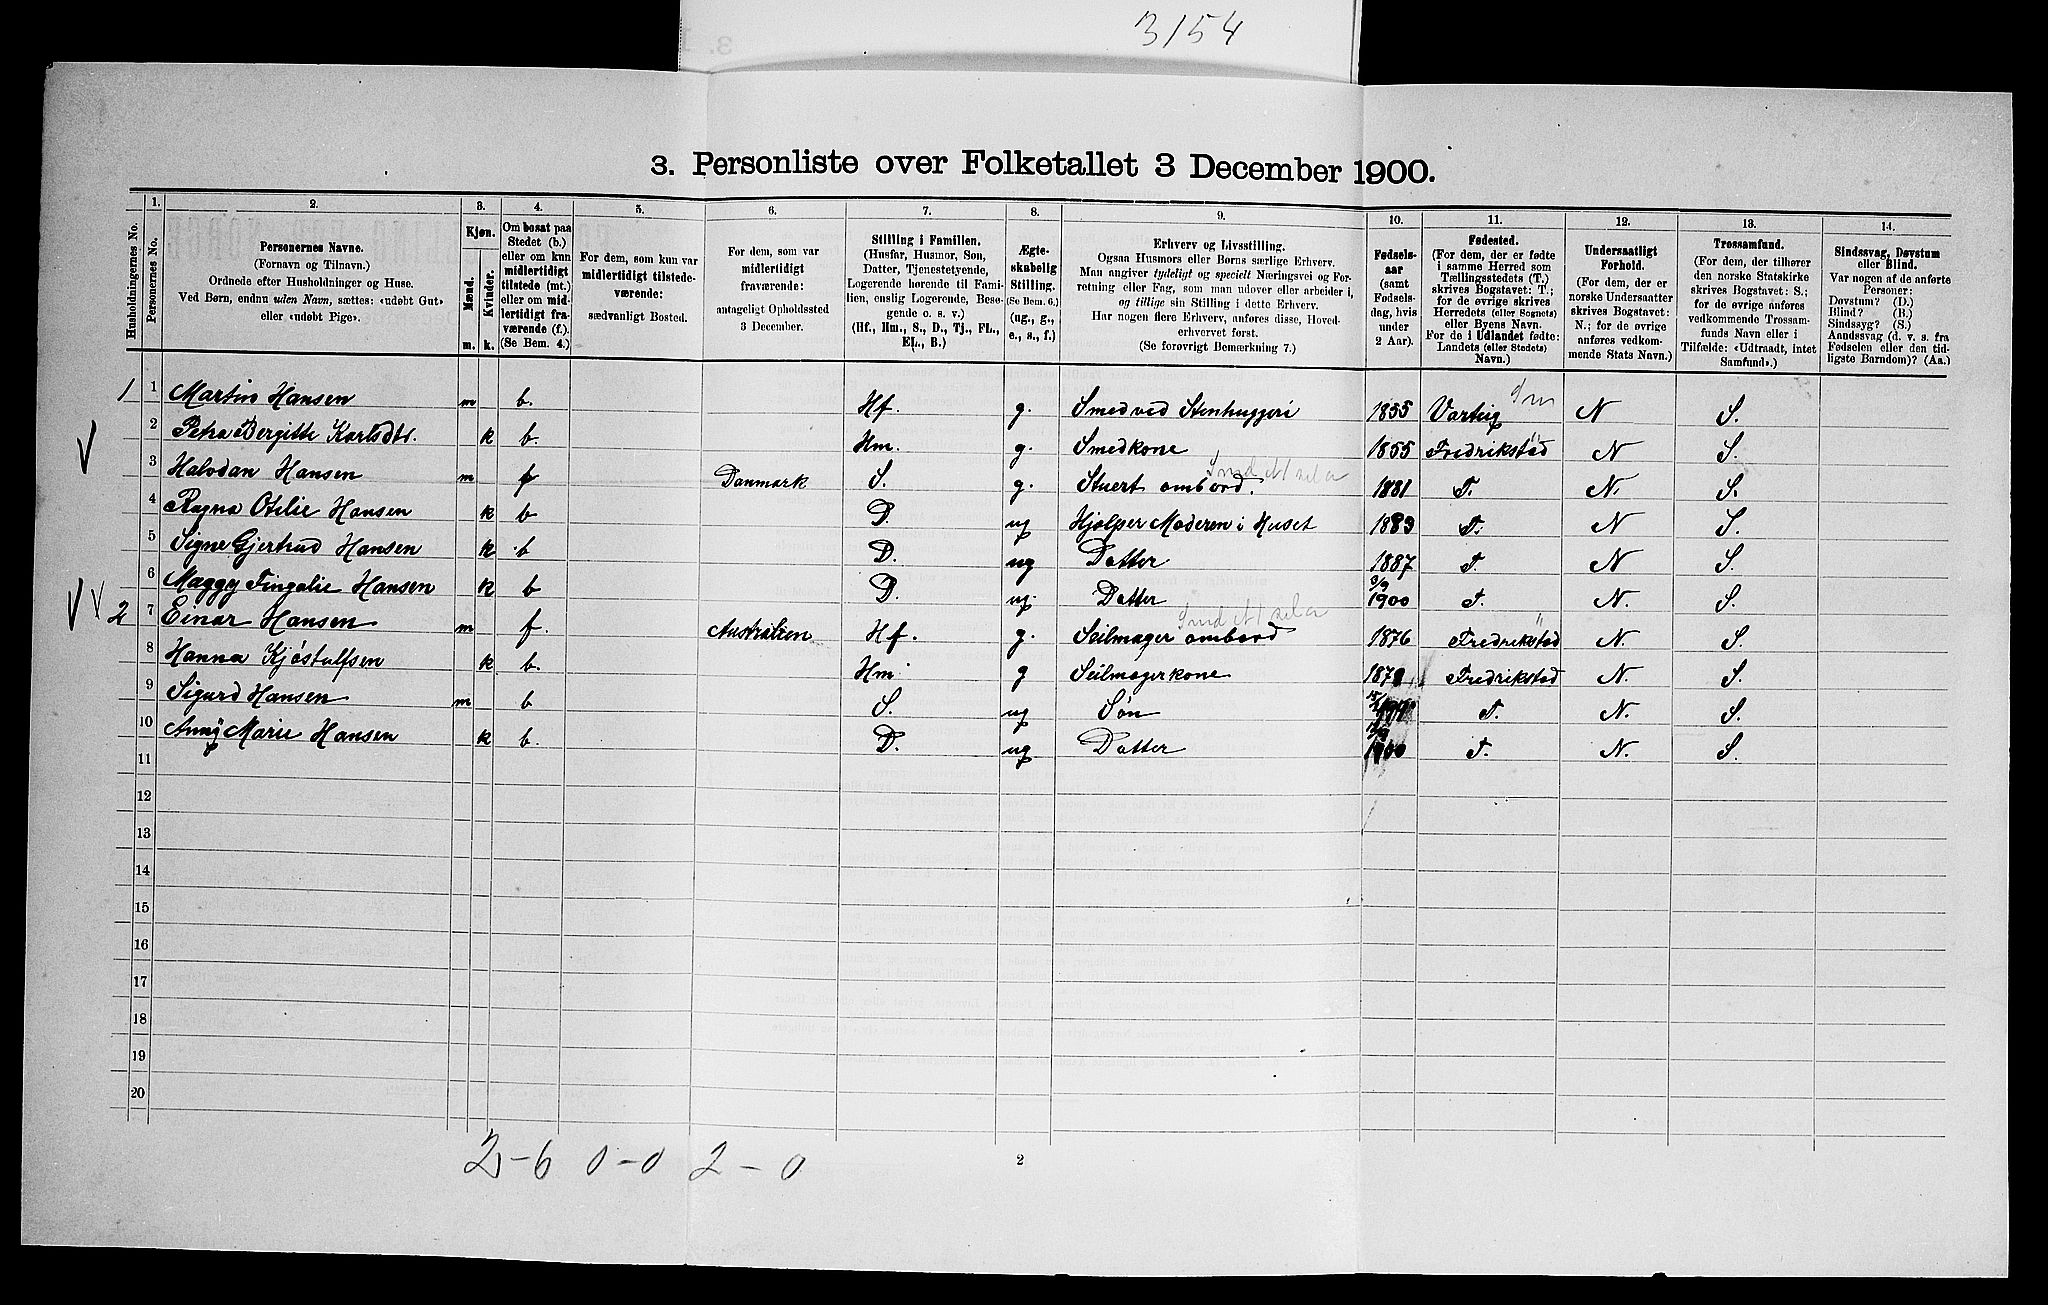 3154
3. Personliste over Folketallet 3 December 1900.
Husholdningernes No.
1. Personernes No.
2. Personernes Navne.
(Fornavn og Tilnavn.)
Ordnede efter Husholdninger og Huse.
Ved Børn, endnu uden Navn, sættes: «udøbt Gut»
eller «udøbt Pige».
3. Kjøn.
Mænd. Kvinder.
m. k.
4. Om bosat paa
Stedet (b.)
eller om kun
midlertidigt
tilstede (mt.)
eller om mid-
lertidigt fra-
værende (f.).
(Se Bem. 4.)
5. For dem, som kun var
midlertidigt tilstede-
værende:
sædvanligt Bosted.
6. For dem, som var
midlertidigt
fraværende:
antageligt Opholdssted
3 December.
7. Stilling i Familien.
(Husfar, Husmor, Søn,
Datter, Tjenestetyende,
Logerende hørende til Fami-
lien, enslig Logerende, Besø-
gende o. s. v.)
(Hf., Hm., S., D., Tj., FL.,
EL., B.)
8. Ægte-
skabelig
Stilling.
(Se Bem. 6.)
(ug., g.,
e., s., f.)
9. Erhverv og Livsstilling.
Ogsaa Husmors eller Børns særlige Erhverv.
Man angiver tydeligt og specielt Næringsvei og For-
retning eller Fag, som man udover eller arbeider i,
og tillige sin Stilling i dette Erhverv.
Har nogen flere Erhverv, anføres disse, Hoved-
erhvervet først.
(Se forøvrigt Bemærkning 7.)
10. Fødsels-
aar
(samt
Fødsels-
dag, hvis
under
2 Aar).
11. Fødested.
(For dem, der er fødte
i samme Herred som
Tællingsstedets (T.)
skrives Bogstavet: T.;
for de øvrige skrives
Herredets (eller Sognets)
eller Byens Navn.
For de i Udlandet fødte:
Landets (eller Stedets)
Navn.)
12. Undersaatligt
Forhold.
(For dem, der er
norske Undersaatter
skrives Bogstavet:
N.; for de øvrige
anføres vedkom-
mende Stats Navn.)
13. Trossamfund.
(For dem, der tilhører
den norske Statskirke
skrives Bogstavet: S.;
for de øvrige anføres
vedkommende Trossam-
funds Navn eller i
Tilfælde: «Udtraadt, intet
Samfund».)
14. Sindssvag, Døvstum
eller Blind.
Var nogen af de anførte
Personer:
Døvstum? (D.)
Blind? (B.)
Sindssyg? (S.)
Aandssvag (d. v. s. fra
Fødselen eller den tid-
ligste Barndom)? (Aa.)
1 1 Martin Hansen m b. Hf. g. Smed ved Stenhuggeri 1855 Varteig N S.
2 Petra Bergitte Karlsdtr. k b. Hm. g. Smedkone 1855 Fredrikstad N S.
3 Halvdan Hansen m f Danmark S. g. Stuert ombord. 1881 T. N. S.
4 Ragna Otilie Hansen k b D. ug Hjælper Moderen i Huset 1883 T. N S.
5 Signe Gjertrud Hansen k b D. ug Datter 1887 T. N S.
6 Maggy Fingalie Hansen k b D. ug. Datter 3/9 1900 T. N. S.
2 7 Einar Hansen m f. Australien Hf. g. Seilmager ombord 1876 Fredrikstad N. S.
8 Hanna Kjøstulfsen k b. Hm. g Seilmagerkone Fredrikstad N. S.
9 Sigurd Hansen m b S. ug Søn T. N. S.
10 Anny Marie Hansen k b. D. ug Datter 1900 T. N. S.
11
12
13
14
15
16
17
18
19
20
2-6 0-0 2-0
2